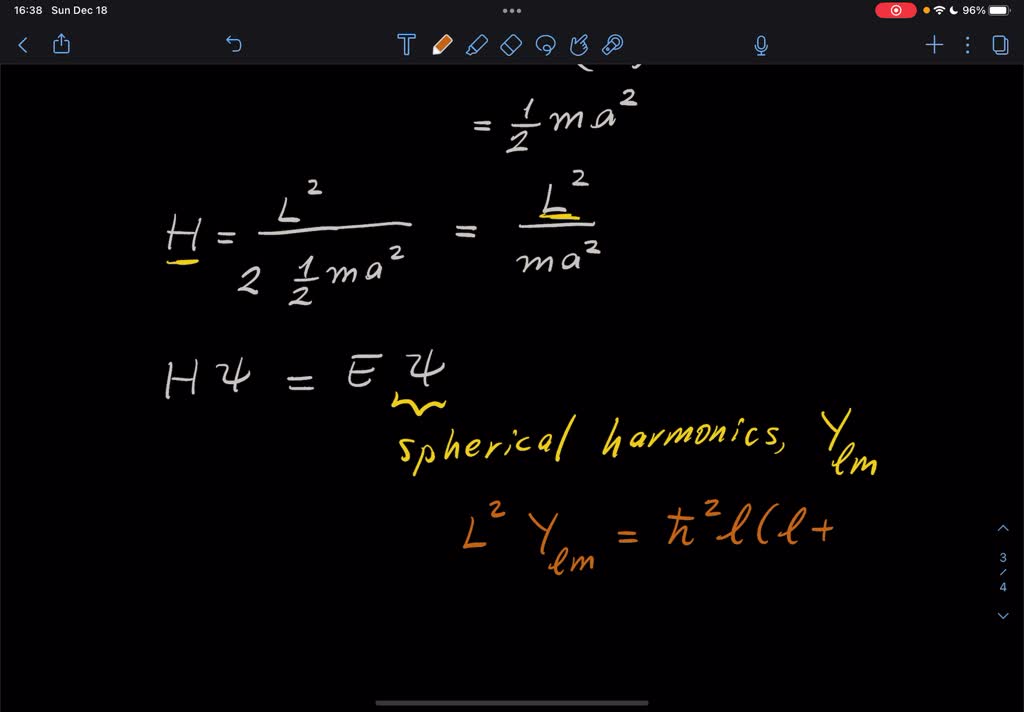 16:38 Sun Dec 18 96%
= 1/2 ma²
H = L² / 2 1/2 ma² = L² / ma²
Hψ = Eψ
spherical harmonics, Yℓm
L² Yℓm = ħ² ℓ(ℓ+
3
/
4